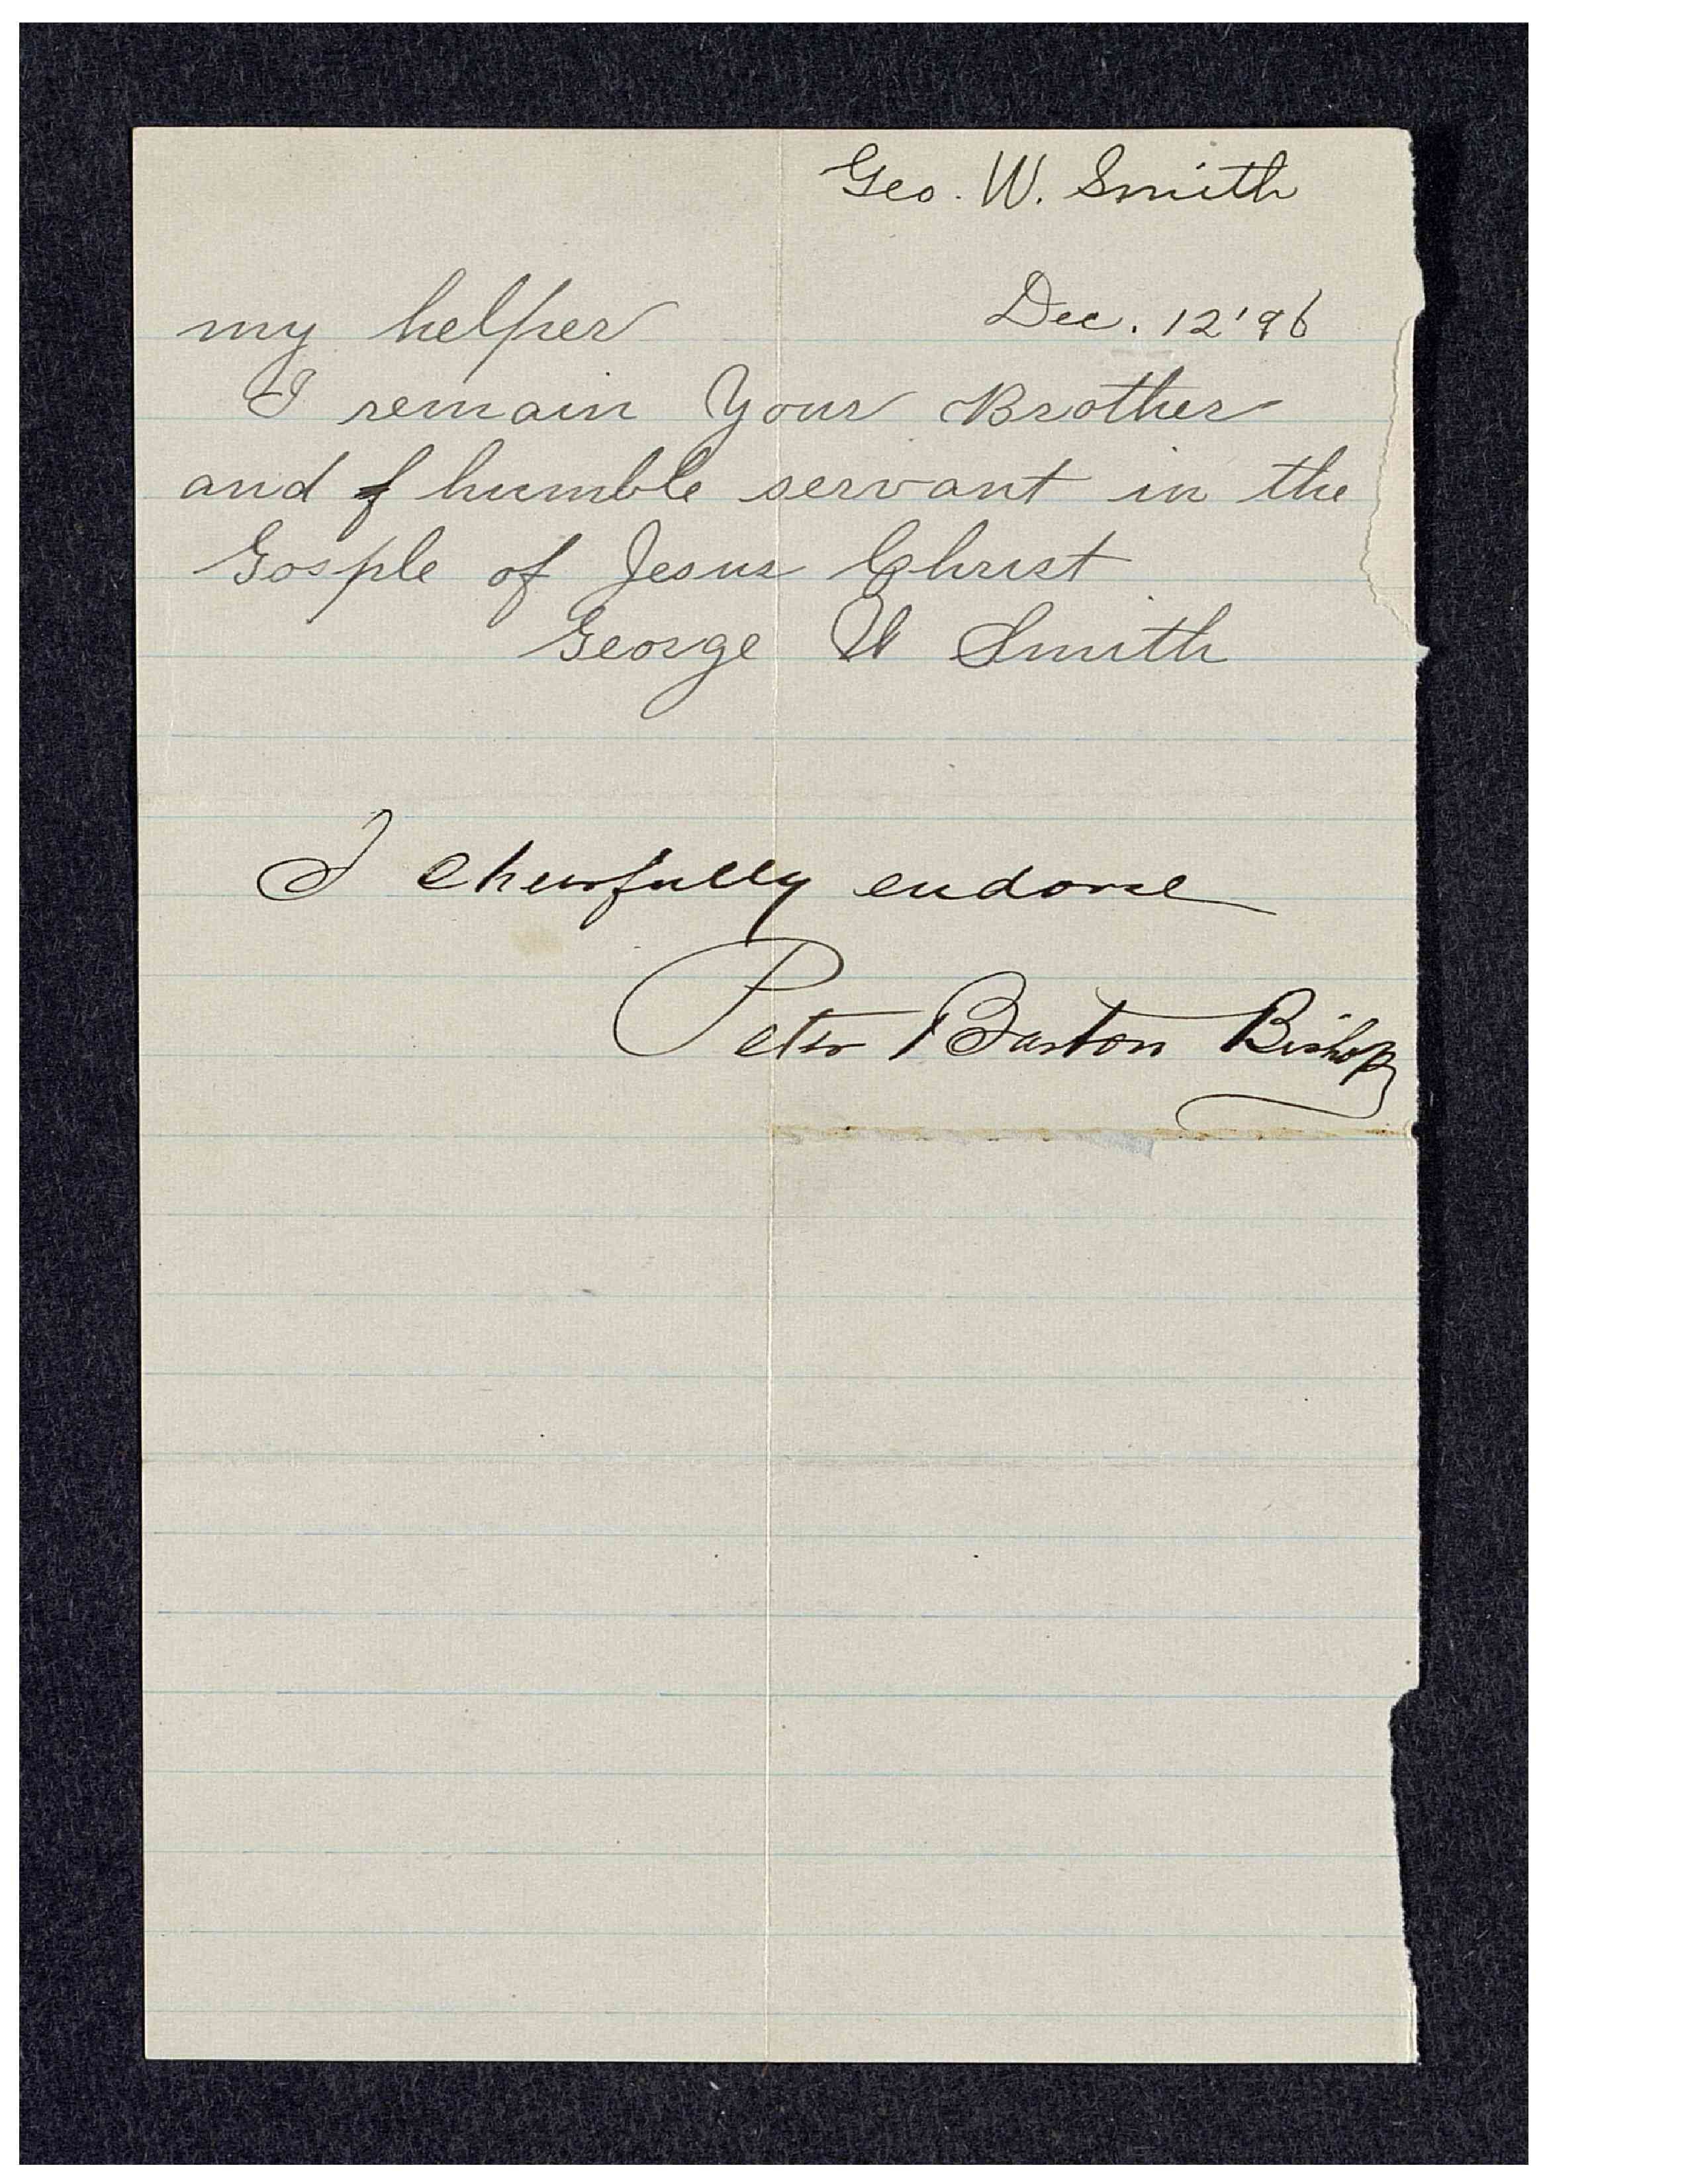 Geo. W. Smith
Dec. 12'96
my helper
I remain Your Brother
and humble servant in the
Gosple of Jesus Christ
George W Smith
I cheerfully endorse
Peter Barton Bishop